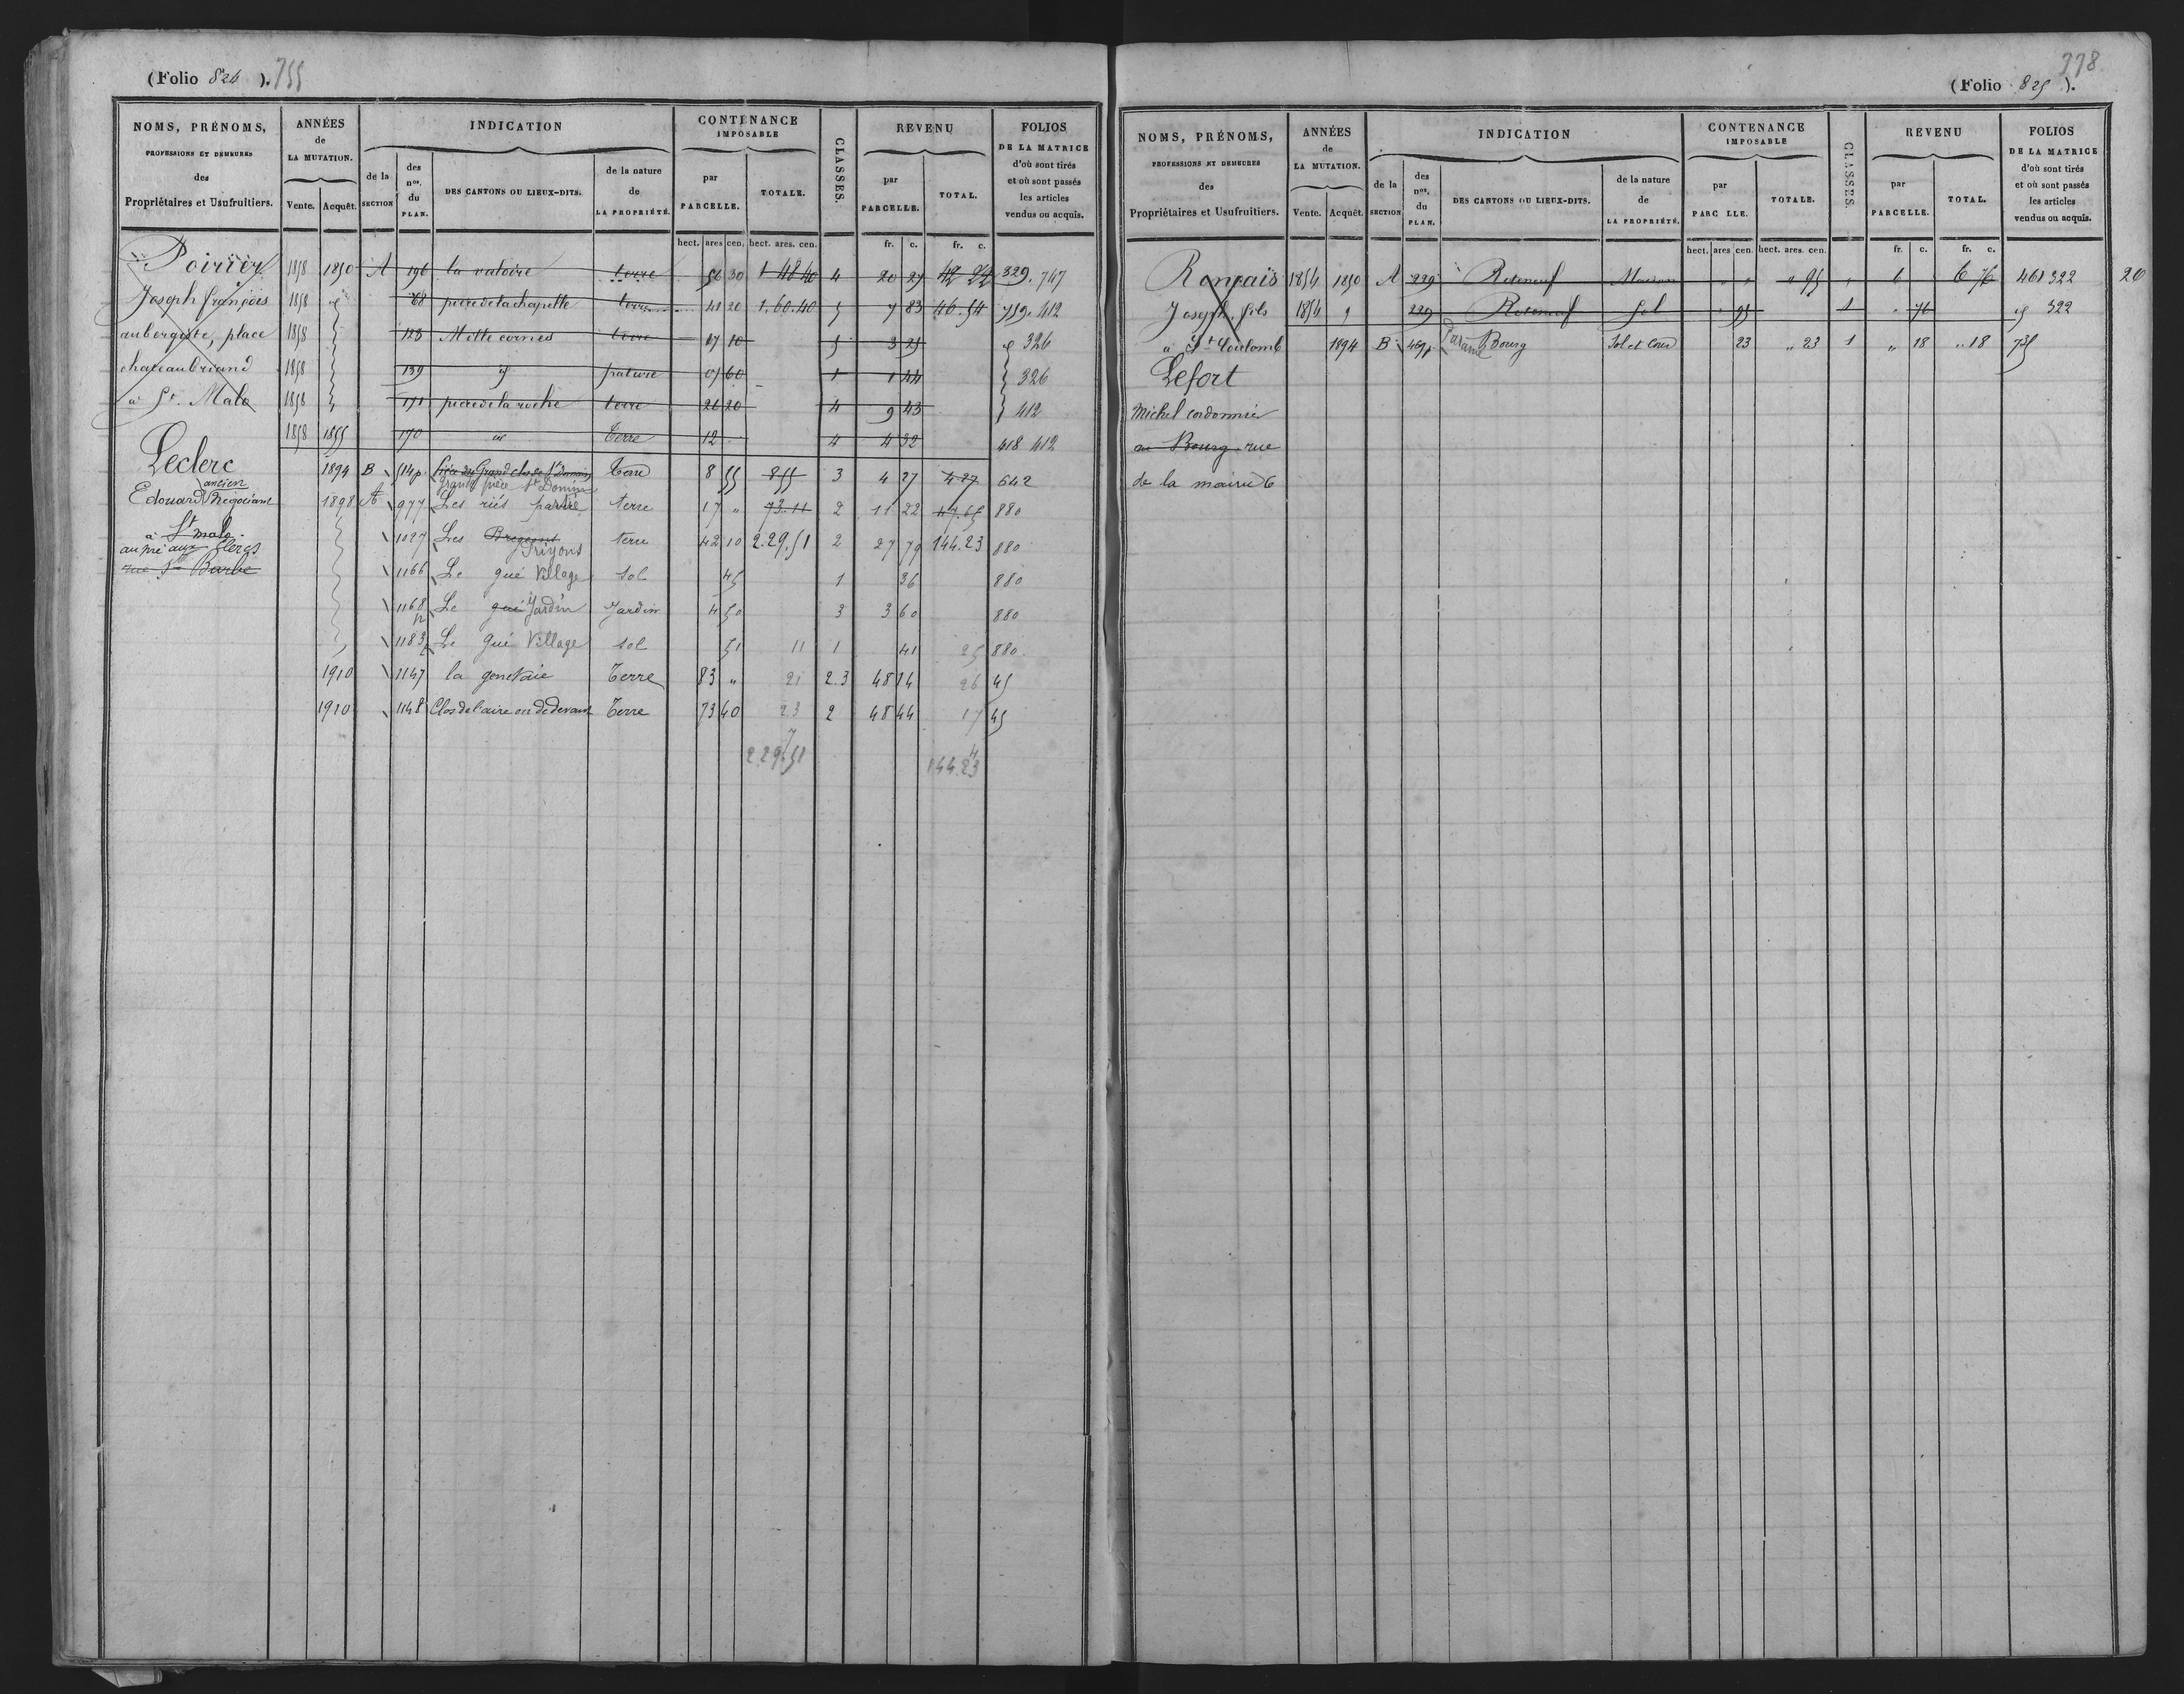 (Folio 824 ). 755
NOMS, PRÉNOMS, PROFESSIONS ET DEMEURES des Propriétaires et Usufruitiers.
ANNÉES de LA MUTATION. Vente. Acquêt.
INDICATION de la SECTION des nos. du PLAN. DES CANTONS OU LIEUX-DITS. de la nature de LA PROPRIÉTÉ.
CONTENANCE IMPOSABLE par PARCELLE. TOTALE.
CLASSES.
REVENU par PARCELLE. TOTAL.
FOLIOS DE LA MATRICE d'où sont tirés et où sont passés les articles vendus ou acquis.
hect. ares cen. hect. ares. cen. fr. c. fr. c.
Poirier 1858 1850 A 196 la valoire terre 56 30 1 48 40 4 20 27 42 22 329. 747
Joseph françois 1858 68 piece de la chapelle terre 41 20 1. 60. 40 5 7 83 46. 54 759. 412
aubergiste, place 1858 128 Mille cornes terre 17 10 5 3 25 326
chateaubriand 1858 139 id pature 07 60 1 1 44 326
à St. Malo 1858 171 piece de la roche terre 26 20 4 9 43 412
1858 1855 170 id Terre 12 4 4 32 418 412
Leclerc 1894 B 514p. Terre 8 55 855 3 4 27 4.27 642
Grande pièce St Domin
Edouard ancien Négociant 1898 A 977 Les riés partie terre 17 " 73.11 2 11 22 47.65 880
à St malo 1027 Les Bregeons Griyons terre 42 10 2.29.51 2 27 79 144.23 880
au pré aux Clercs
rue Ste Barbe 1166 Le gué Village sol 45 1 36 880
1168 p Le gué Jardin Jardin 4 50 3 3 60 880
1183 Le gué Village sol 51 11 1 41 25 880
1910 1147 la genetaie Terre 83 " 21 2.3 48 14 26 45
1910 1148 Clos de l'aire ou de devant Terre 73 40 23 2 48 44 17 45
2.29.51 144.23
778
(Folio 825 ).
NOMS, PRÉNOMS, PROFESSIONS ET DEMEURES des Propriétaires et Usufruitiers.
ANNÉES de LA MUTATION. Vente. Acquêt.
INDICATION de la SECTION des nos. du PLAN. DES CANTONS OU LIEUX-DITS. de la nature de LA PROPRIÉTÉ.
CONTENANCE IMPOSABLE par PARC LLE. TOTALE.
CLASSES.
REVENU par PARCELLE. TOTAL.
FOLIOS DE LA MATRICE d'où sont tirés et où sont passés les articles vendus ou acquis.
hect. ares cen. hect. ares. cen. fr. c. fr. c.
Ronçais 1854 1850 A 229 Roteneuf Maison " " " 95 6 6 76 461 322 26
Joseph, fils 1854 229 Roteneuf Sol " 95 1 " 76 322
à St Coulomb 1894 B 469p Paramé Bourg Sol et Cour 23 " 23 1 " 18 " 18 735
Lefort
Michel cordonnier
au Bourg rue
de la mairie 6